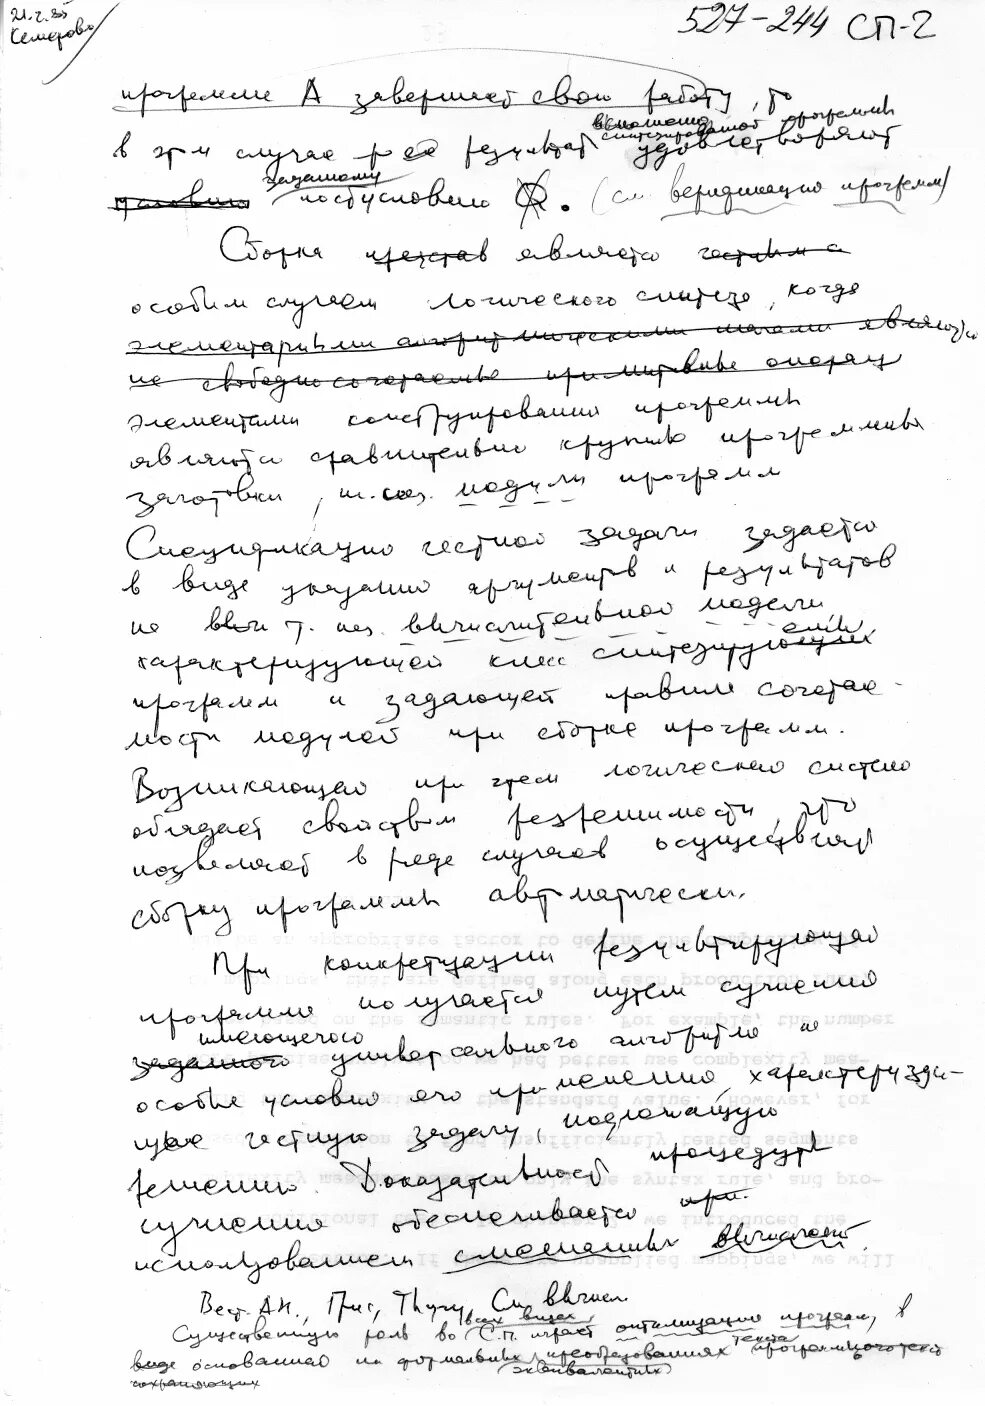 21.2.85
Кемерово
527-244 СП-2
программа A завершает свою работу, то
в этом случае ее результат выполнения синтезированной программы удовлетворяют
условию заданному постусловию (см верификация программ)
Сборка является частным
особым случаем логического синтеза, когда
элементарными алгоритмическими шагами являются
не свободно сочетаемые примитивные операц
элементами конструирования программы
являются сравнительно крупные программные
заготовки, т. наз. модули программ
Спецификация частной задачи задается
в виде указания аргументов и результатов
на т. наз. вычислительной модели,
характеризующей класс синтезируемых
программ и задающей правила сочетае-
мости модулей при сборке программ.
Возникающая при этом логическая система
обладает свойством разрешимости, что
позволяет в ряде случаев осуществлять
сборку программы автоматически.
При конкретизации результирующая
программа получается путем сужения
заданного имеющегося универсального алгоритма на
особые условия его применения, характеризую-
щие частную задачу, подлежащую
решению. Доказательность процедуры
сужения обеспечивается при
использованием смешанных вычислений.
Вест. АН., Прис, Тыугу, См. вычисл.
Существенную роль во всех видах С.П. играет оптимизация программ, в
виде основанная на формальных преобразованиях текста программного текст
сохраняющих (эквивалентных)